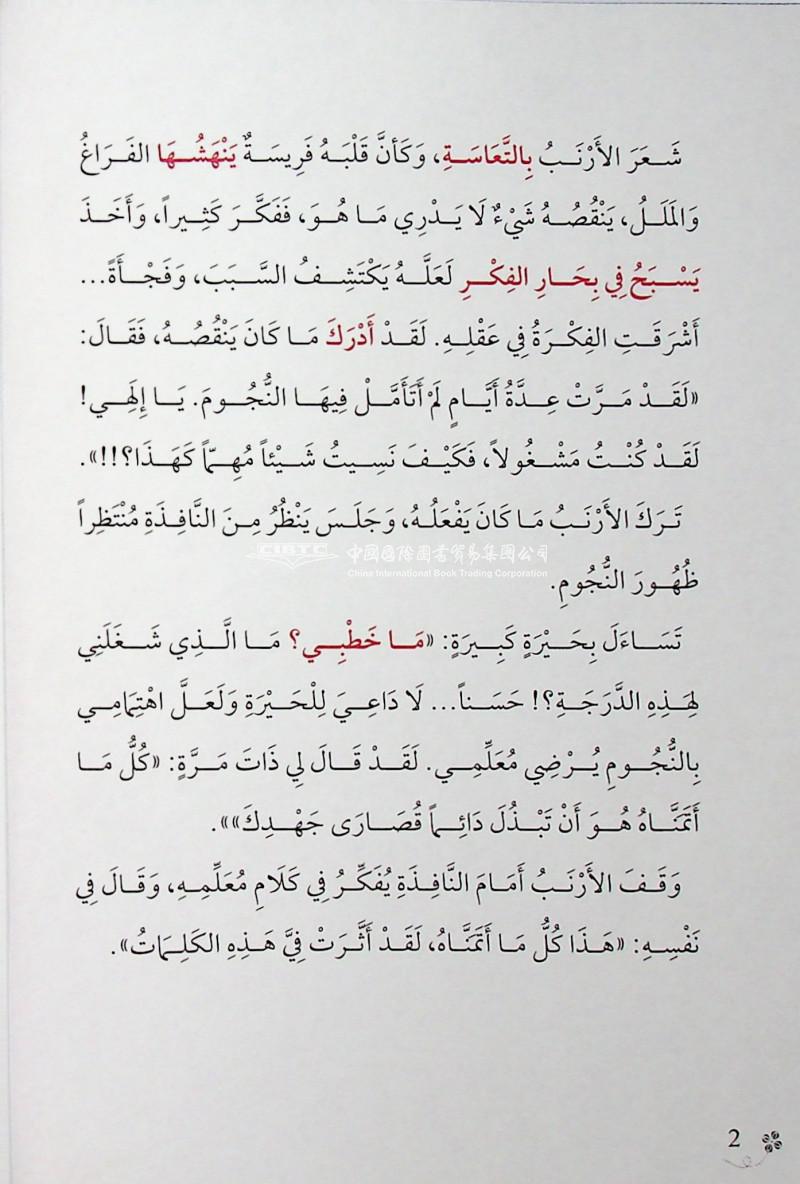 شَعَرَ الأَرْنَبُ بِالتَّعَاسَةِ، وَكَأَنَّ قَلْبَهُ فَرِيسَةٌ يَنْهَشُهَا الفَرَاغُ
وَالمَلَلُ، يَنْقُصُهُ شَيْءٌ لَا يَدْرِي مَا هُوَ، فَفَكَّرَ كَثِيراً، وَأَخَذَ
يَسْبَحُ فِي بِحَارِ الفِكْرِ لَعَلَّهُ يَكْتَشِفُ السَّبَبَ، وَفَجْأَةً...
أَشْرَقَتِ الفِكْرَةُ فِي عَقْلِهِ. لَقَدْ أَدْرَكَ مَا كَانَ يَنْقُصُهُ، فَقَالَ:
«لَقَدْ مَرَّتْ عِدَّةُ أَيَّامٍ لَمْ أَتَأَمَّلْ فِيهَا النُّجُومَ. يَا إِلَهِي!
لَقَدْ كُنْتُ مَشْغُولاً، فَكَيْفَ نَسِيتُ شَيْئاً مُهِمّاً كَهَذَا؟!!».
تَرَكَ الأَرْنَبُ مَا كَانَ يَفْعَلُهُ، وَجَلَسَ يَنْظُرُ مِنَ النَّافِذَةِ مُنْتَظِراً
CIBTC 中国国际图书贸易集团公司
China International Book Trading Corporation
ظُهُورَ النُّجُومِ.
تَسَاءَلَ بِحَيْرَةٍ كَبِيرَةٍ: «مَا خَطْبِي؟ مَا الَّذِي شَغَلَنِي
لِهَذِهِ الدَّرَجَةِ؟! حَسَناً... لَا دَاعِيَ لِلْحَيْرَةِ وَلَعَلَّ اهْتِمَامِي
بِالنُّجُومِ يُرْضِي مُعَلِّمِي. لَقَدْ قَالَ لِي ذَاتَ مَرَّةٍ: «كُلُّ مَا
أَتَمَنَّاهُ هُوَ أَنْ تَبْذُلَ دَائِماً قُصَارَى جَهْدِكَ»».
وَقَفَ الأَرْنَبُ أَمَامَ النَّافِذَةِ يُفَكِّرُ فِي كَلَامِ مُعَلِّمِهِ، وَقَالَ فِي
نَفْسِهِ: «هَذَا كُلُّ مَا أَتَمَنَّاهُ، لَقَدْ أَثَّرَتْ فِيَّ هَذِهِ الكَلِمَاتُ».
2